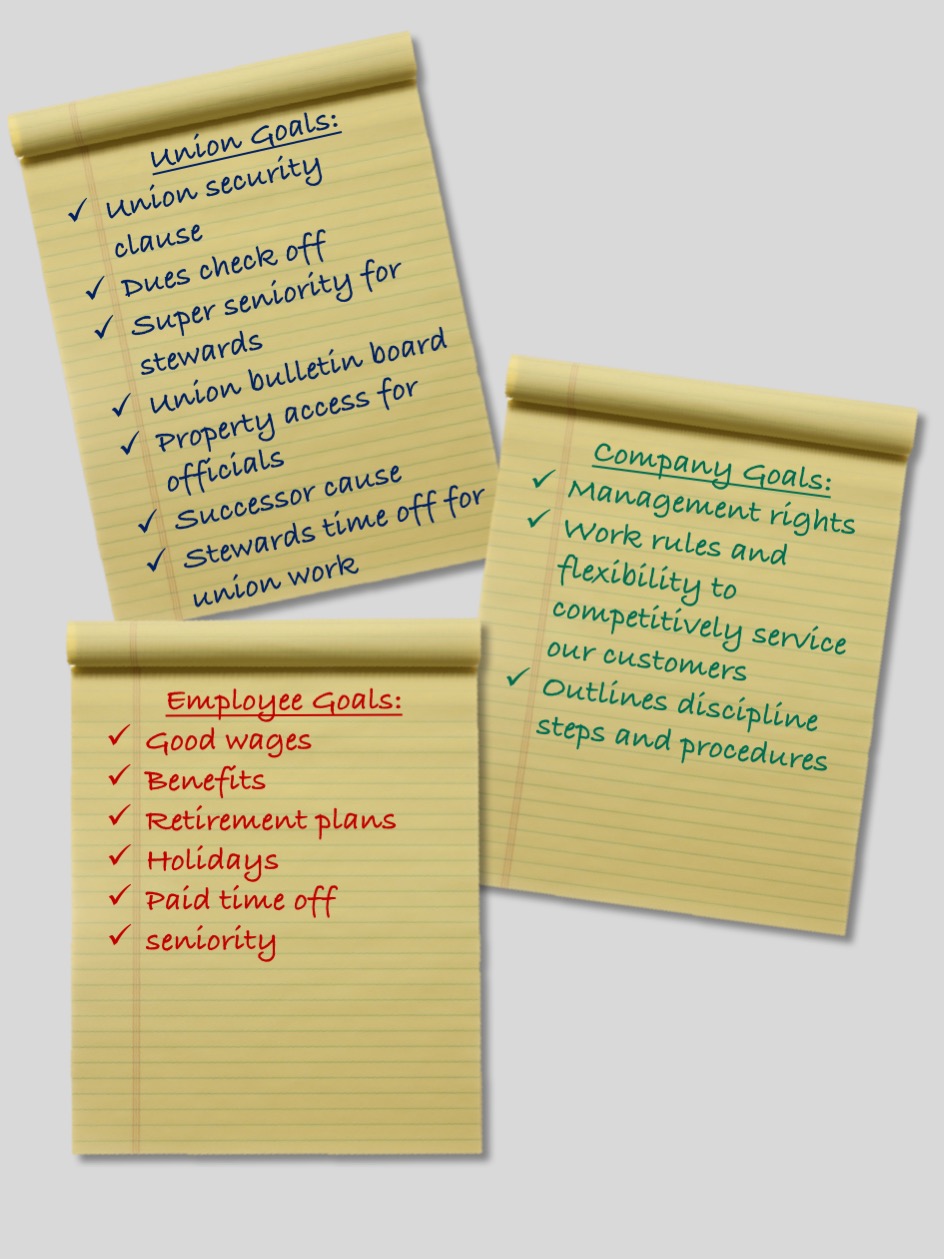 Union Goals:
✓ Union security
clause
✓ Dues check off
✓ Super seniority for
stewards
✓ Union bulletin board
✓ Property access for
officials
✓ Successor cause
✓ Stewards time off for
union work
Company Goals:
✓ Management rights
✓ Work rules and
flexibility to
competitively service
our customers
✓ Outlines discipline
steps and procedures
Employee Goals:
✓ Good wages
✓ Benefits
✓ Retirement plans
✓ Holidays
✓ Paid time off
✓ seniority